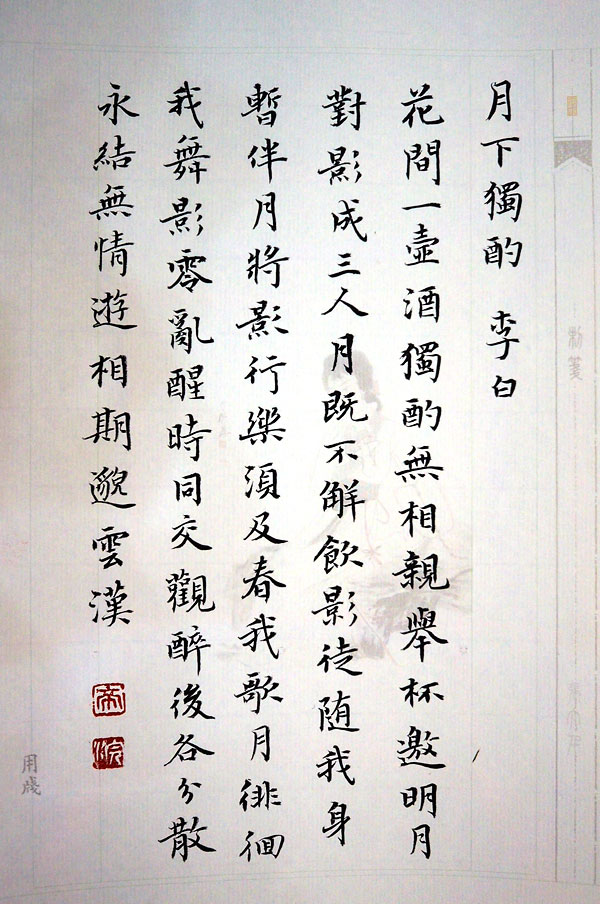 月下獨酌 李白
花間一壺酒獨酌無相親舉杯邀明月
對影成三人月既不解飲影徒随我身
暫伴月將影行樂須及春我歌月徘徊
我舞影零亂醒時同交觀醉後各分散
永結無情遊相期邈雲漢
用牋